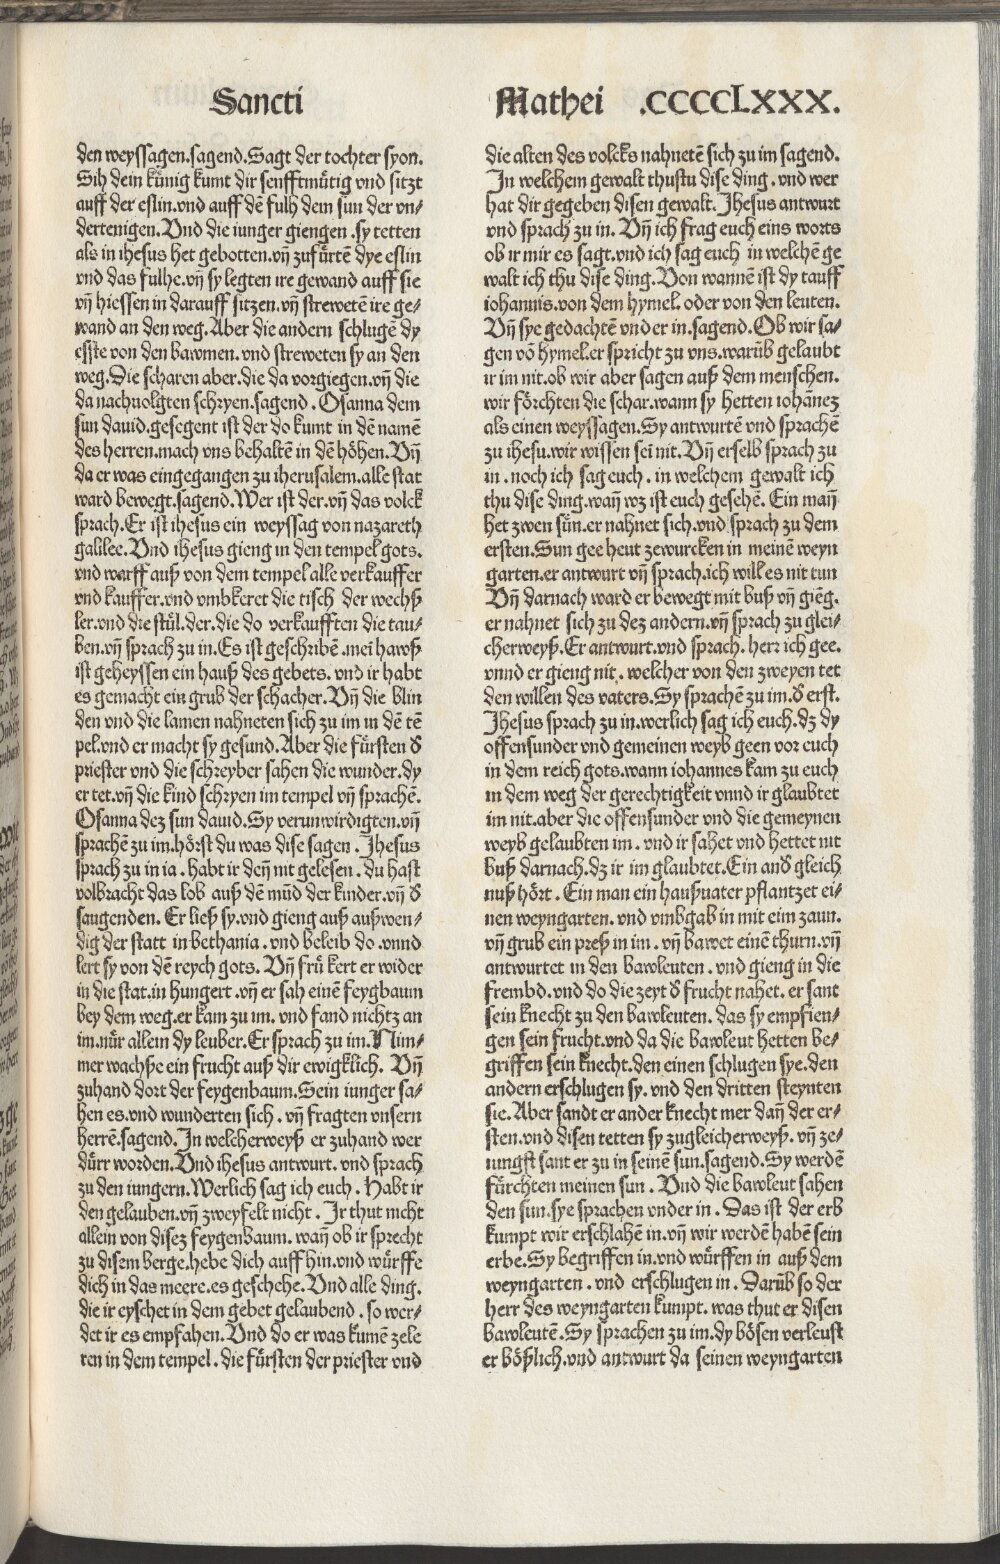 Sancti
Mathei .CCCCLXXX.
den weyssagen.sagend.Sagt der tochter syon.
Sih dein künig kumt dir senfftmütig vnd sitzt
auff der eslin.vnd auff dē fulh dem sun der vn⸗
dertenigen.Vnd die iunger giengen .sy tetten
als in ihesus het gebotten.vñ zufürtē dye eslin
vnd das fulhe.vñ sy legten ire gewand auff sie
vñ hiessen in darauff sitzen.vñ strewetē ire ge⸗
wand an den weg.Aber die andern schlugē dy
esste von den bawmen.vnd streweten sy an den
weg.Die scharen aber.die da vorgiegen.vñ die
da nachuolgten schryen.sagend . Osanna dem
sun dauid.gesegent ist der do kumt in dē namē
des herren.mach vns behaltē in dē höhen. Vñ
da er was eingegangen zu iherusalem.alle stat
ward bewegt.sagend.Wer ist der.vñ das volck
sprach.Er ist ihesus ein weyssag von nazareth
galilee.Vnd ihesus gieng in den tempel gots.
vnd warff auß von dem tempel alle verkauffer
vnd kauffer.vnd vmbkeret die tisch der wechß
ler.vnd die stül.der.die do verkaufften die tau⸗
ben.vñ sprach zu in.Es ist geschribē.mei hawß
ist geheyssen ein hauß des gebets. vnd ir habt
es gemacht ein grub der schacher.Vñ die blin
den vnd die lamen nahneten sich zu im in dē tē
pel.vnd er macht sy gesund.Aber die fürsten d̕
priester vnd die schreyber sahen die wunder.dy
er tet.vñ die kind schryen im tempel vñ sprachē.
Osanna dez sun dauid.Sy verunwirdigten.vñ
sprachē zu im.hörst du was dise sagen . Jhesus
sprach zu in ia . habt ir deñ nit gelesen . du hast
volbracht das lob auß dē mūd der kinder.vñ d̕
saugenden. Er ließ sy.vnd gieng auß außwen⸗
dig der statt in bethania . vnd beleib do .vnnd
lert sy von dē reych gots. Vñ frü kert er wider
in die stat.in hungert .vñ er sah einē feygbaum
bey dem weg.er kam zu im. vnd fand nichtz an
im.nür allein dy leuber.Er sprach zu im.Nim⸗
mer wachße ein frucht auß dir ewigklich. Vñ
zuhand dort der feygenbaum.Sein iunger sa⸗
hen es.vnd wunderten sich . vñ fragten vnsern
herrē.sagend.Jn welcherweyß er zuhand wer
dürr worden.Vnd ihesus antwurt. vnd sprach
zu den iungern.Werlich sag ich euch . Habt ir
den gelauben.vñ zweyfelt nicht . Jr thut nicht
allein von disez feygenbaum. wañ ob ir sprecht
zu disem berge.hebe dich auff hin.vnd würffe
dich in das meere.es geschehe. Vnd alle ding.
die ir eyschet in dem gebet gelaubend . so wer⸗
det ir es empfahen.Vnd do er was kumē zele
ren in dem tempel . die fürsten der priester vnd
die alten des volcks nahnetē sich zu im sagend.
Jn welchem gewalt thustu dise ding . vnd wer
hat dir gegeben disen gewalt. Jhesus antwurt
vnd sprach zu in. Vñ ich frag euch eins worts
ob ir mir es sagt.vnd ich sag euch in welchē ge
walt ich thu dise ding.Von wannē ist dy tauff
iohannis.von dem hymel. oder von den leuten.
Vñ sye gedachtē vnder in.sagend.Ob wir sa⸗
gen vō hymel.er spricht zu vns.warūb gelaubt
ir im nit.ob wir aber sagen auß dem menschen.
wir förchten die schar.wann sy hetten iohānez
als einen weyssagen.Sy antwurtē vnd sprachē
zu ihesu.wir wissen sei nit. Vñ er selb sprach zu
in . noch ich sag euch . in welchem gewalt ich
thu dise ding.wañ wz ist euch gesehē. Ein mañ
het zwen sün.er nahnet sich.vnd sprach zu dem
ersten.Sun gee heut zewurcken in meinē weyn
garten.er antwurt vñ sprach.ich will es nit tun
Vñ darnach ward er bewegt mit buß vñ giēg.
er nahnet sich zu dez andern.vñ sprach zu glei⸗
cherweyß.Er antwurt.vnd sprach. herr ich gee.
vnnd er gieng nit . welcher von den zweyen tet
den willen des vaters.Sy sprachē zu im.d̕ erst.
Jhesus sprach zu in.werlich sag ich euch.dz dy
offensunder vnd gemeinen weyb geen vor euch
in dem reich gots.wann iohannes kam zu euch
in dem weg der gerechtigkeit vnnd ir glaubtet
im nit.aber die offensunder vnd die gemeynen
weyb gelaubten im . vnd ir sahet vnd hettet nit
buß darnach.dz ir im glaubtet.Ein and̕ gleich
nuß hört . Ein man ein haußuater pflantzet ei⸗
nen weyngarten. vnd vmbgab in mit eim zaun.
vñ grub ein preß in im . vñ bawet einē thurn.vñ
antwurtet in den bawleuten . vnd gieng in die
frembd.vnd do die zeyt d̕ frucht nahet. er sant
sein knecht zu den bawleuten. das sy empfien⸗
gen sein frucht.vnd da die bawleut hetten be⸗
griffen sein knecht.den einen schlugen sye.den
andern erschlugen sy. vnd den dritten steynten
sie. Aber sandt er ander knecht mer dañ der er⸗
sten.vnd disen tetten sy zugleicherweyß. vñ ze⸗
iungst sant er zu in seinē sun.sagend.Sy werdē
fürchten meinen sun . Vnd die bawleut sahen
den sun.sye sprachen vnder in . Das ist der erb
kumpt wir erschlahē in.vñ wir werdē habē sein
erbe.Sy begriffen in.vnd würffen in auß dem
weyngarten . vnd erschlugen in . Darūb so der
herr des weyngarten kumpt. was thut er disen
bawleutē.Sy sprachen zu im.dy bösen verleust
er bößlich.vnd antwurt da seinen weyngarten